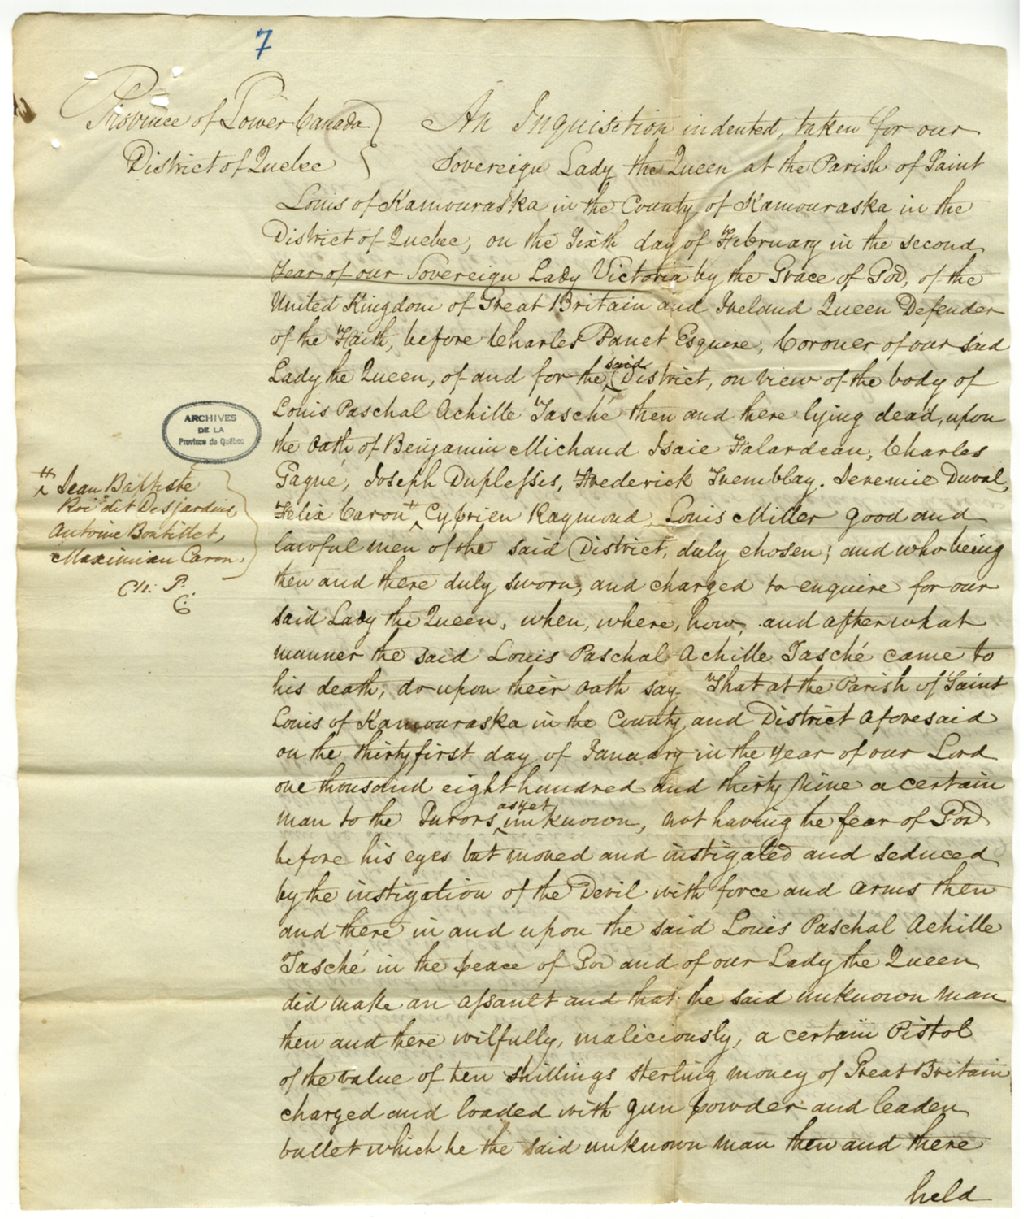 7
Province of Lower Canada
District of Quebec
An Inquisition indented, taken for our
Sovereign Lady the Queen at the Parish of Saint
Louis of Kamouraska in the County of Kamouraska in the
District of Quebec, on the Sixth day of February in the second
Year of our Sovereign Lady Victoria by the Grace of God, of the
United Kingdom of Great Britain and Ireland Queen Defender
of the Faith, before Charles Panet Esquire, Coroner of our said
Lady the Queen, of and for the said District, on view of the body of
Louis Paschal Achille Tasché then and there lying dead, upon
the Oath of Benjamin Michaud Isaie Falardeau, Charles
Gagné, Joseph Duplessis, Frederick Tremblay. Jeremie Duval,
Felix Caron, Cyprien Raymond, Louis Miller good and
lawful men of the said District, duly chosen; and who being
then and there duly sworn, and charged to enquire for our
said Lady the Queen, when, where, how, and after what
manner the said Louis Paschal Achille Tasché came to
his death, do upon their Oath say That at the Parish of Saint
Louis of Kamouraska in the County and District aforesaid
on the thirty first day of January in the year of our Lord
one thousand eight hundred and thirty Nine a certain
man to the Jurors as yet unknown, not having the fear of God
before his eyes but moved and instigated and seduced
by the instigation of the Devil with force and arms then
and there in and upon the said Louis Paschal Achille
Tasché in the peace of God and of our Lady the Queen
did make an assault and that the said unknown man
then and there wilfully, maliciously, a certain Pistol
of the value of ten shillings sterling money of Great Britain
charged and loaded with gun powder and leaden
bullet which he the said unknown man then and there
held
ARCHIVES
DE LA
Province de Québec
Jean Baptiste
Roi dit Desjardins
Antoine Boutillet,
Maximien Caron.
Ch. P.
C.